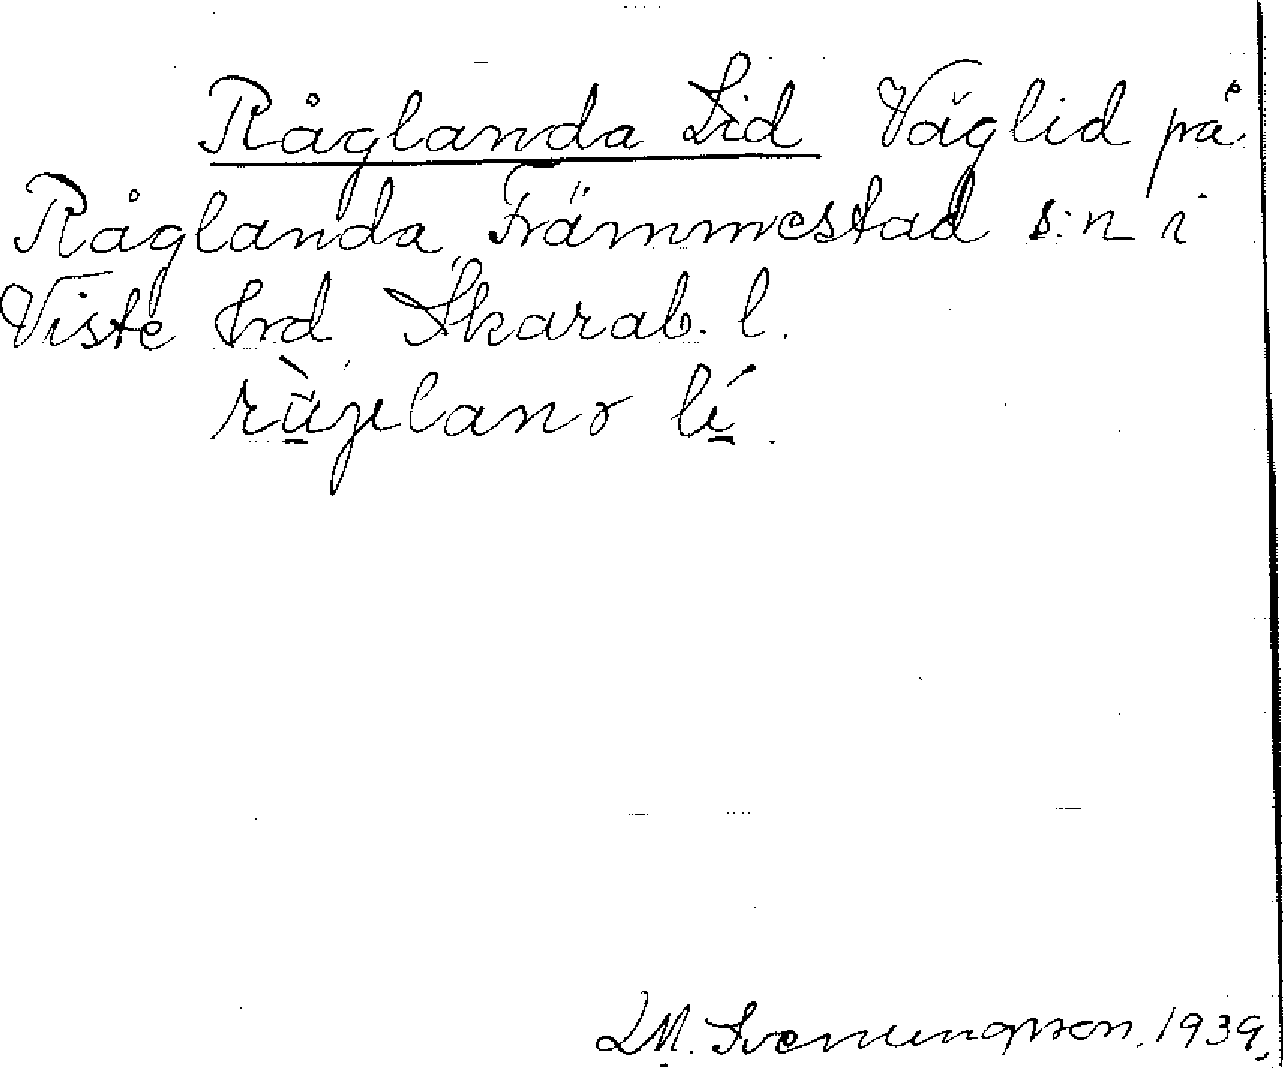 Råglanda Lid Väglid på
Råglanda, Främmestad s:n i
Viste hrd Skarab. l.
LM. Svenungsson. 1939.